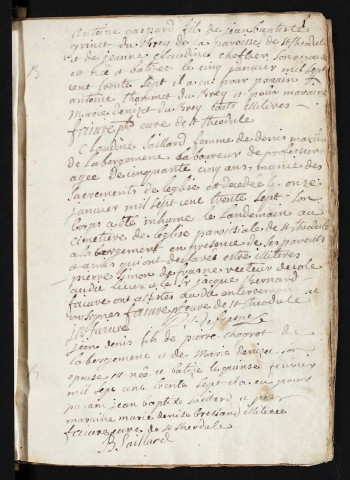 Antoine gaspard fils de jean baptiste
grinet du Brey de la paroisse de St theodule
et de jeanne claudine choffier son epouse
est né a batisé le cinq janvier mil sept
cent trente sept il a eu pour parain
antoine thommet du Brey et pour maraine
Marie denizet du Brey touts illiteres
faivre ptre curé de St theodule
Claudine Saillard femme de denis
de la bergement laboureur de profession
agée de cinquante cinq ans munie des
sacrements de l'eglise est decedée le onze
janvier mil sept cent trente sept son
corps a été inhumé le landemain au
cimetiere de l'eglise paroissiale de St theodule
a la bergement en presence de ses parents
et amis qui ont declarés estre illiteres
pierre Simon de recteur d'ecole
audit lieu et le Sr jacque Bernard
faivre ont assistés au dit enterrement et
faivre curé de St theodule
faivre
jean denis fils de pierre
de la bergement et de Marie denizet son
epouse est né et batisé le fevrier
mil sept cent trente sept il a eu pour
parain jean baptiste Saillard et pour
maraine marie denise illiteree
faivre curé de St theodule
B Saillard